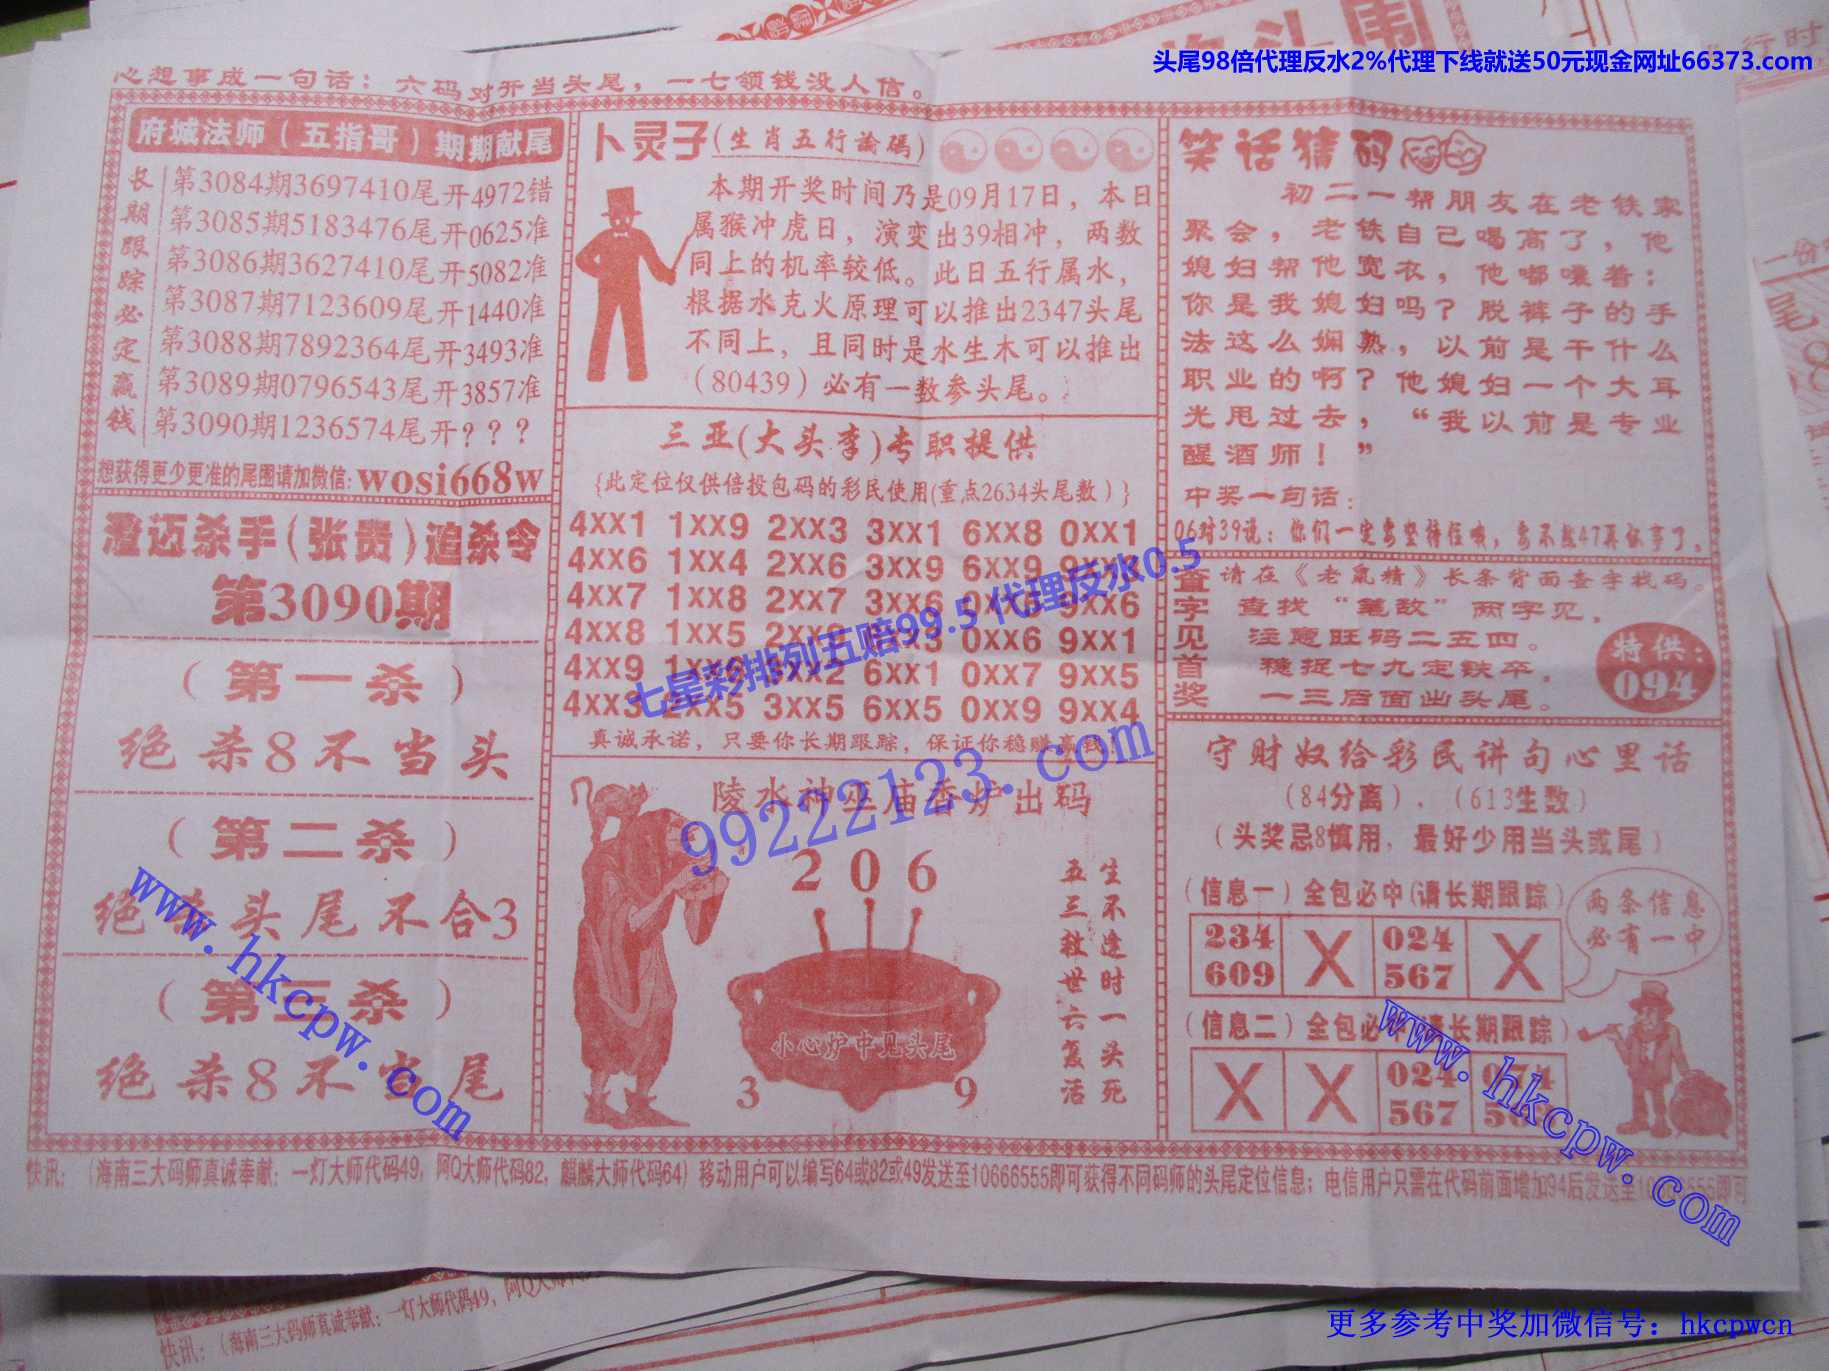 头尾98倍代理反水2%代理下线就送50元现金网址66373.com
心想事成一句话：六码对开当头尾，一七领钱没人信。
府城法师（五指哥）期期献尾
长期跟踪必定赢钱
第3084期3697410尾开4972错
第3085期5183476尾开0625准
第3086期3627410尾开5082准
第3087期7123609尾开1440准
第3088期7892364尾开3493准
第3089期0796543尾开3857准
第3090期1236574尾开？？？
想获得更少更准的尾围请加微信：wosi668w
澄迈杀手（张贵）追杀令
第3090期
（第一杀）
绝杀8不当头
（第二杀）
绝杀头尾不合3
（第三杀）
绝杀8不当尾
卜灵子（生肖五行論碼）
本期开奖时间乃是09月17日，本日
属猴冲虎日，演变出39相冲，两数
同上的机率较低。此日五行属水，
根据水克火原理可以推出2347头尾
不同上，且同时是水生木可以推出
（80439）必有一数参头尾。
三亚（大头李）专职提供
{此定位仅供倍投包码的彩民使用(重点2634头尾数）}
4XX1 1XX9 2XX3 3XX1 6XX8 0XX1
4XX6 1XX4 2XX6 3XX9 6XX9
4XX7 1XX8 2XX7 3XX6 9XX6
4XX8 1XX5 0XX6 9XX1
4XX9 6XX1 0XX7 9XX5
4XX3 2XX5 3XX5 6XX5 0XX9 9XX4
真诚承诺，只要你长期跟踪，保证你稳赚赢钱！
七星彩排列五赔99.5 代理反水0.5
99222123.com
陵水神巫庙香炉出码
2 0 6
小心炉中见头尾
3 9
生不逢时一头死
五三救世六复活
笑话猜码
初二一帮朋友在老铁家
聚会，老铁自己喝高了，他
媳妇帮他宽衣，他嘟囔着：
你是我媳妇吗？脱裤子的手
法这么娴熟，以前是干什么
职业的啊？他媳妇一个大耳
光甩过去，“我以前是专业
醒酒师！”
中奖一句话：
06对39说：你们一定要坚持住哦，要不然47再似事了。
查字见首奖
请在《老鼠精》长条背面查字找码。
查找“笔敌”两字见，
注意旺码二五四。
稳捉七九定铁卒，
一三后面出头尾。
特供：
094
守财奴给彩民讲句心里话
（84分离），（613生数）
（头奖忌8慎用，最好少用当头或尾）
（信息一）全包必中（请长期跟踪）
234 609 X 024 567 X
两条信息
必有一中
（信息二）全包必中（请长期跟踪）
X X 024 567
快讯：（海南三大码师真诚奉献：一灯大师代码49，阿Q大师代码82，麒麟大师代码64）移动用户可以编写64或82或49发送至10666555即可获得不同码师的头尾定位信息；电信用户只需在代码前面增加94后发送至10666555即可
www.hkcpw.com
www.hkcpw.com
快讯：（海南三大码师真诚奉献：一灯大师代码49，阿Q大师代
更多参考中奖加微信号：hkcpwcn